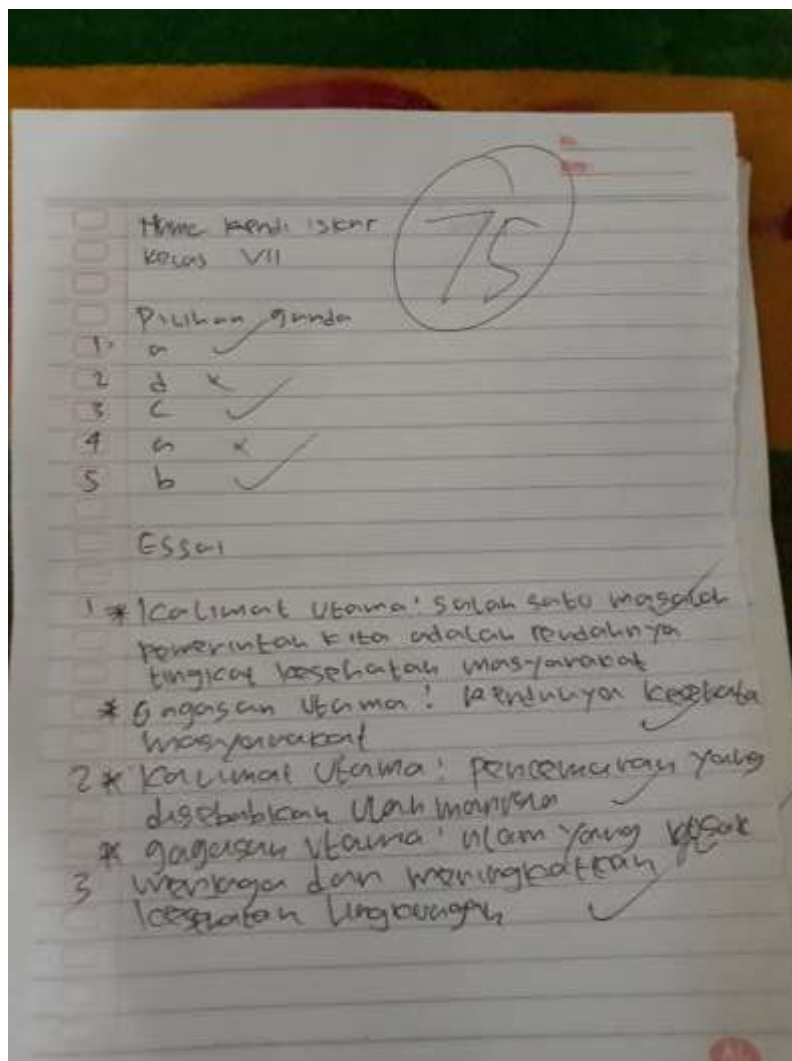 Name Kendi iskar
Kelas VII
75
Pilihan ganda
1. a
2 d
3 c
4 a
5 b
Essai
1 * Kalimat Utama: Salah satu masalah
pemerintah kita adalah rendahnya
tingkat kesehatan masyarakat
* Gagasan Utama: kesehata
masyarakat
2 * Kalimat Utama: pencemaran yang
disebabkan Ulah manusia
* gagasan Utama: alam yang rusak
3 menjaga dan meningkatkan
kesehatan lingkungan